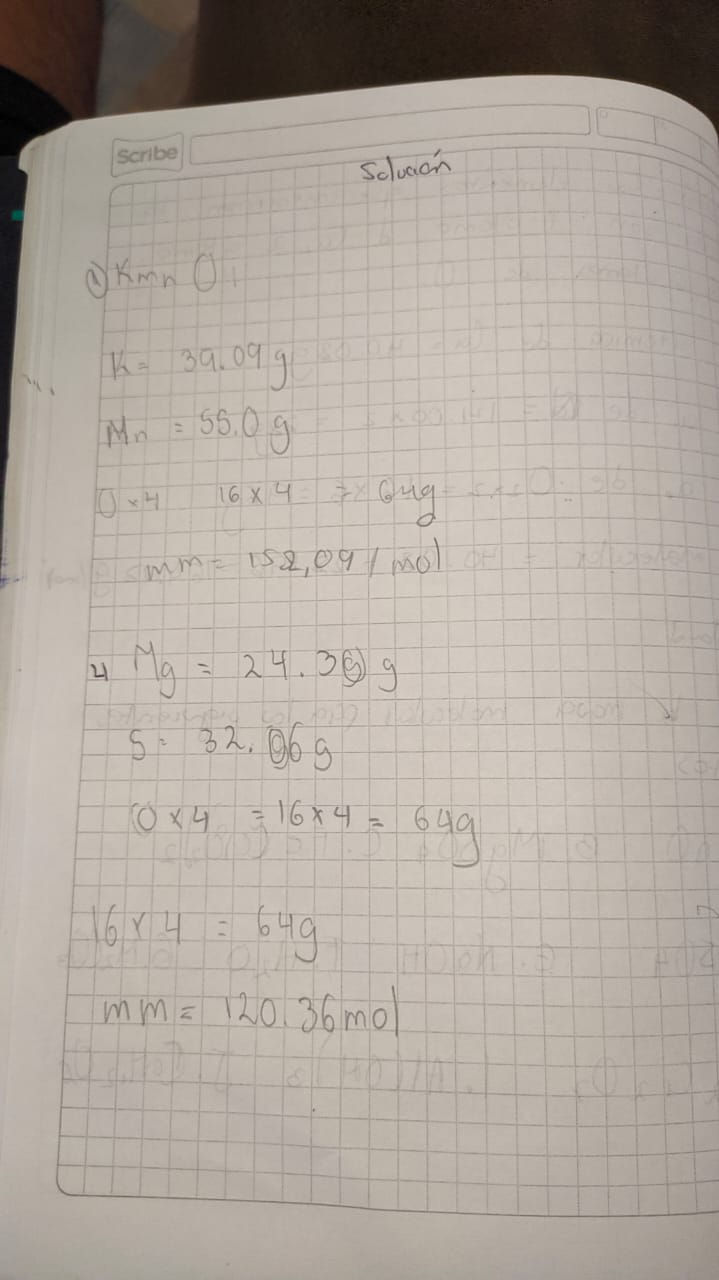 Scribe
Solución
1) Kmn O4
K= 39.09 g
Mn = 55.0 g
O×4 16×4 = 64g
mm= 158,09 / mol
4 Mg = 24.30 g
S= 32.06 g
O×4 =16×4= 64g
16×4 = 64g
mm= 120.36 mol